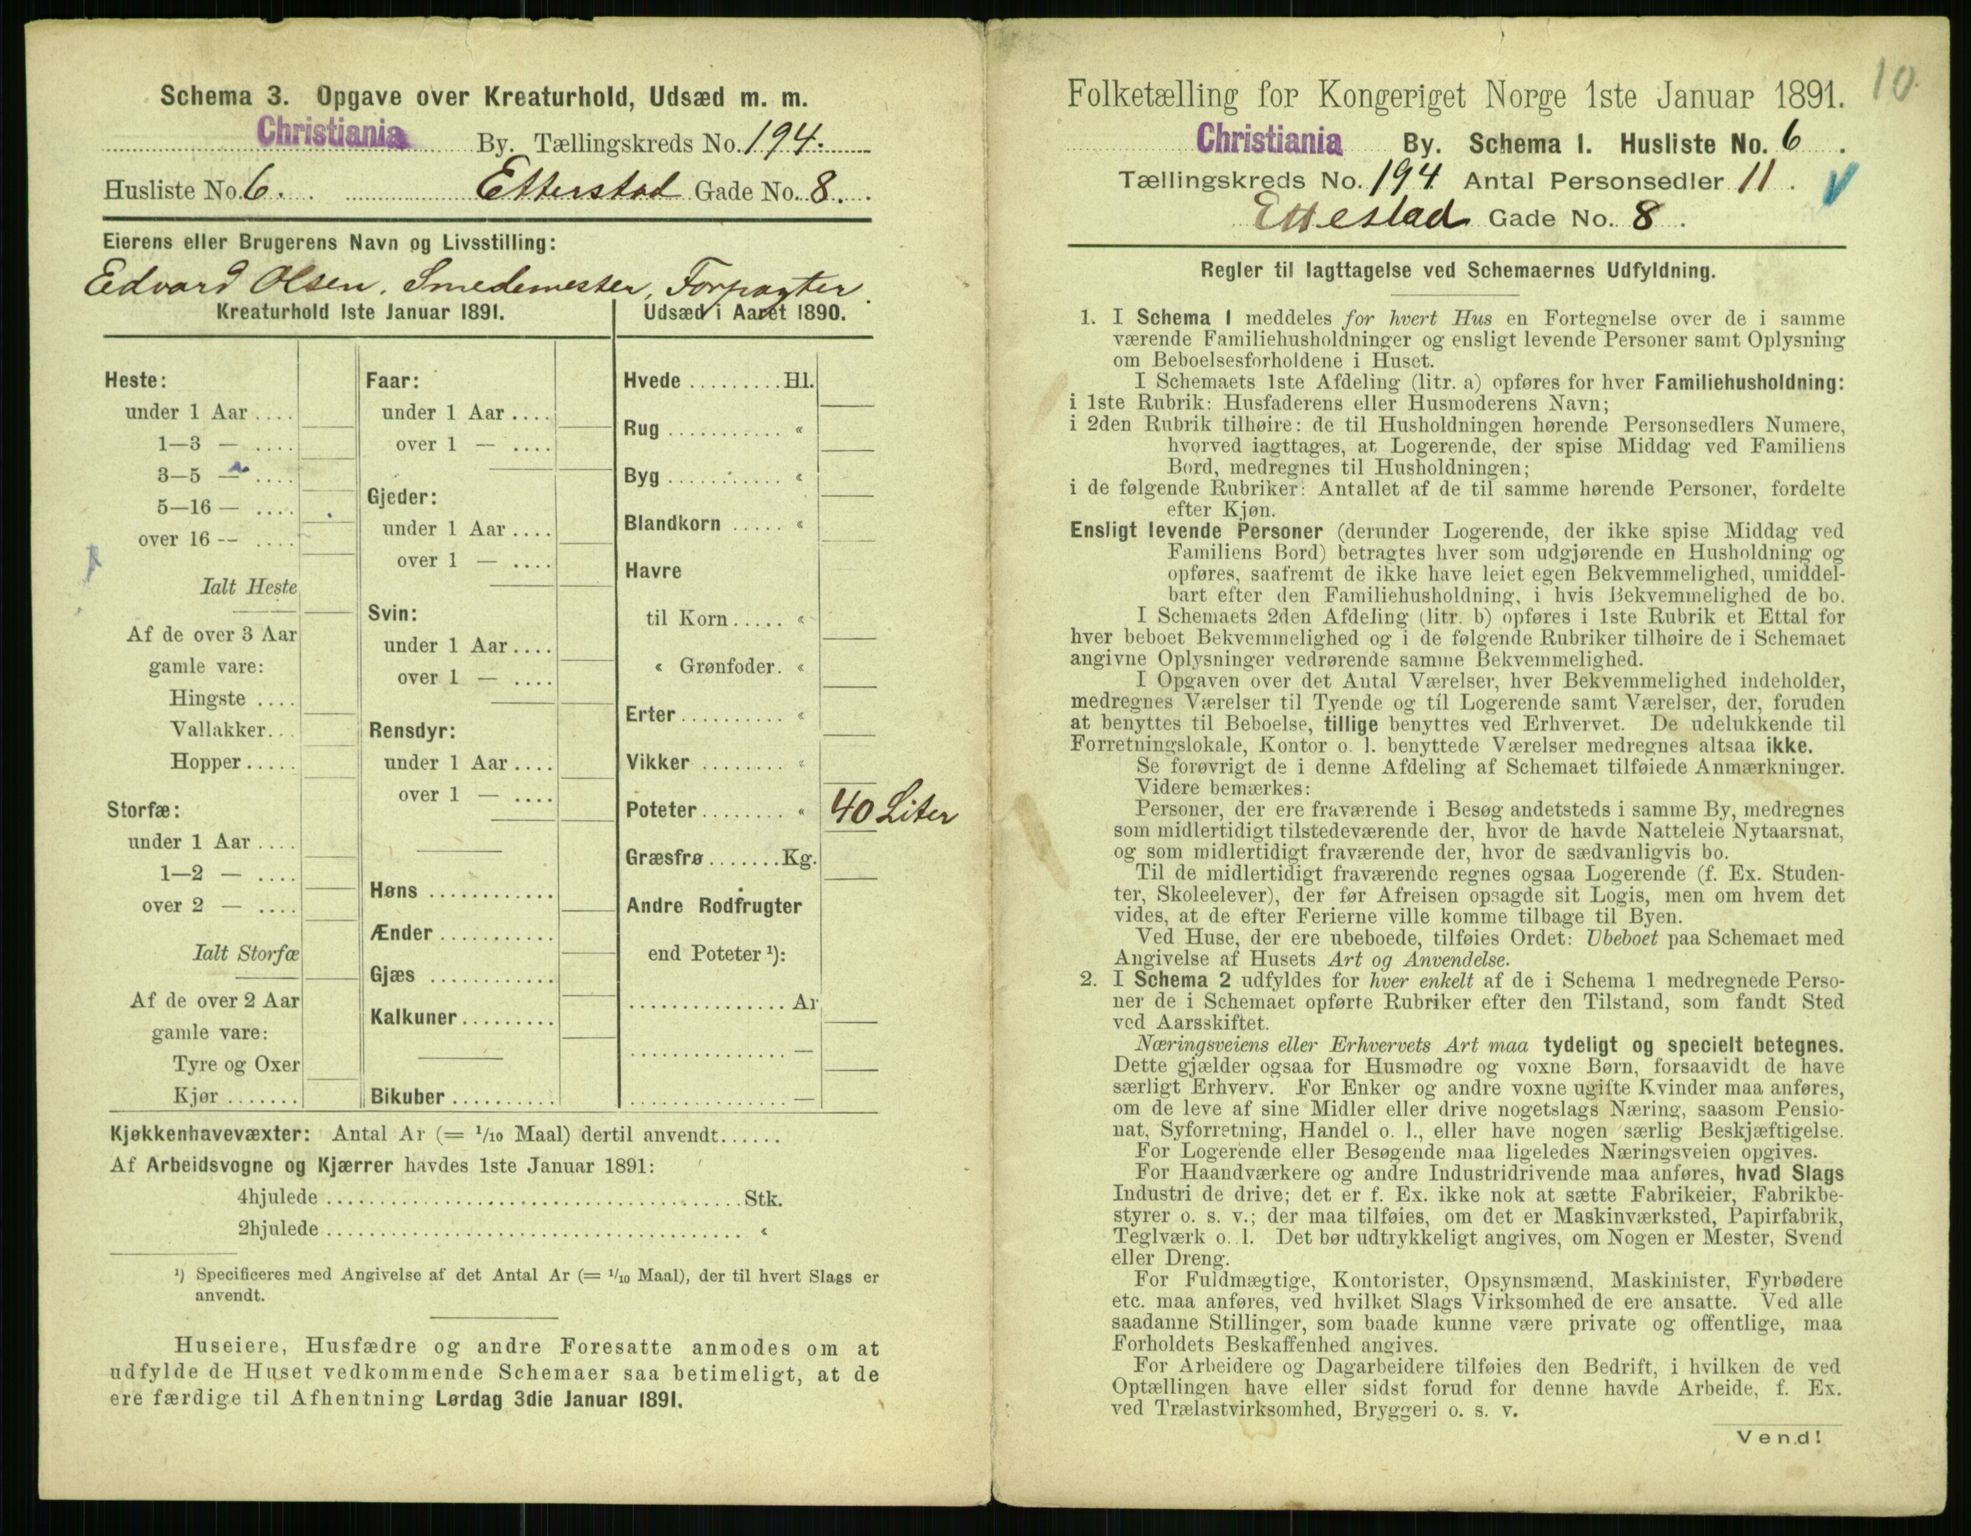 Schema 3. Opgave over Kreaturhold, Udsæd m. m.
Christiania By. Tællingskreds No. 194.
Husliste No. 6. Etterstad Gade No. 8.
Eierens eller Brugerens Navn og Livsstilling:
Edvard Olsen, Smedemester, Forpagter.
Kreaturhold 1ste Januar 1891.
Heste:
under 1 Aar....
1—3 — ....
3—5 — ....
5—16 — ....
over 16 -- ....
Ialt Heste
Af de over 3 Aar
gamle vare:
Hingste ....
Vallakker...
Hopper.....
Storfæ:
under 1 Aar....
1—2 — ....
over 2 — ....
Ialt Storfæ
Af de over 2 Aar
gamle vare:
Tyre og Oxer
Kjør .......
Faar:
under 1 Aar....
over 1 — ....
Gjeder:
under 1 Aar....
over 1 — ....
Svin:
under 1 Aar....
over 1 — ....
Rensdyr:
under 1 Aar....
over 1 — ....
Høns ............
Ænder ...........
Gjæs ............
Kalkuner.........
Bikuber ..........
Udsæd i Aaret 1890.
Hvede .........Hl.
Rug ........... «
Byg ........... «
Blandkorn ..... «
Havre
til Korn ..... «
« Grønfoder. «
Erter.......... «
Vikker ........ «
Poteter........ « 40 Liter
Græsfrø.......Kg.
Andre Rodfrugter
end Poteter ¹):
............... Ar
............... —
............... —
Kjøkkenhavevæxter: Antal Ar (= 1/10 Maal) dertil anvendt......
Af Arbeidsvogne og Kjærrer havdes 1ste Januar 1891:
4hjulede ....................................Stk.
2hjulede .................................... «
¹) Specificeres med Angivelse af det Antal Ar (= 1/10 Maal), der til hvert Slags er
anvendt.
Huseiere, Husfædre og andre Foresatte anmodes om at
udfylde de Huset vedkommende Schemaer saa betimeligt, at de
ere færdige til Afhentning Lørdag 3die Januar 1891.
10.
Folketælling for Kongeriget Norge 1ste Januar 1891.
Christiania By. Schema 1. Husliste No. 6.
Tællingskreds No. 194 Antal Personsedler 11.
Ettestad Gade No. 8.
Regler til Iagttagelse ved Schemaernes Udfyldning.
1. I Schema 1 meddeles for hvert Hus en Fortegnelse over de i samme
værende Familiehusholdninger og ensligt levende Personer samt Oplysning
om Beboelsesforholdene i Huset.
I Schemaets 1ste Afdeling (litr. a) opføres for hver Familiehusholdning:
i 1ste Rubrik: Husfaderens eller Husmoderens Navn;
i 2den Rubrik tilhøire: de til Husholdningen hørende Personsedlers Numere,
hvorved iagttages, at Logerende, der spise Middag ved Familiens
Bord, medregnes til Husholdningen;
i de følgende Rubriker: Antallet af de til samme hørende Personer, fordelte
efter Kjøn.
Ensligt levende Personer (derunder Logerende, der ikke spise Middag ved
Familiens Bord) betragtes hver som udgjørende en Husholdning og
opføres, saafremt de ikke have leiet egen Bekvemmelighed, umiddel-
bart efter den Familiehusholdning, i hvis Bekvemmelighed de bo.
I Schemaets 2den Afdeling (litr. b) opføres i 1ste Rubrik et Ettal for
hver beboet Bekvemmelighed og i de følgende Rubriker tilhøire de i Schemaet
angivne Oplysninger vedrørende samme Bekvemmelighed.
I Opgaven over det Antal Værelser, hver Bekvemmelighed indeholder,
medregnes Værelser til Tyende og til Logerende samt Værelser, der, foruden
at benyttes til Beboelse, tillige benyttes ved Erhvervet. De udelukkende til
Forretningslokale, Kontor o. l. benyttede Værelser medregnes altsaa ikke.
Se forøvrigt de i denne Afdeling af Schemaet tilføiede Anmærkninger.
Videre bemærkes:
Personer, der ere fraværende i Besøg andetsteds i samme By, medregnes
som midlertidigt tilstedeværende der, hvor de havde Natteleie Nytaarsnat,
og som midlertidigt fraværende der, hvor de sædvanligvis bo.
Til de midlertidigt fraværende regnes ogsaa Logerende (f. Ex. Studen-
ter, Skoleelever), der før Afreisen opsagde sit Logis, men om hvem det
vides, at de efter Ferierne ville komme tilbage til Byen.
Ved Huse, der ere ubeboede, tilføies Ordet: Ubeboet paa Schemaet med
Angivelse af Husets Art og Anvendelse.
2. I Schema 2 udfyldes for hver enkelt af de i Schema 1 medregnede Perso-
ner de i Schemaet opførte Rubriker efter den Tilstand, som fandt Sted
ved Aarsskiftet.
Næringsveiens eller Erhvervets Art maa tydeligt og specielt betegnes.
Dette gjælder ogsaa for Husmødre og voxne Børn, forsaavidt de have
særligt Erhverv. For Enker og andre voxne ugifte Kvinder maa anføres,
om de leve af sine Midler eller drive nogetslags Næring, saasom Pensio-
nat, Syforretning, Handel o. l., eller have nogen særlig Beskjæftigelse.
For Logerende eller Besøgende maa ligeledes Næringsveien opgives.
For Haandværkere og andre Industridrivende maa anføres, hvad Slags
Industri de drive; det er f. Ex. ikke nok at sætte Fabrikeier, Fabrikbe-
styrer o. s. v.; der maa tilføies, om det er Maskinværksted, Papirfabrik,
Teglværk o. l. Det bør udtrykkeligt angives, om Nogen er Mester, Svend
eller Dreng.
For Fuldmægtige, Kontorister, Opsynsmænd, Maskinister, Fyrbødere
etc. maa anføres, ved hvilket Slags Virksomhed de ere ansatte. Ved alle
saadanne Stillinger, som baade kunne være private og offentlige, maa
Forholdets Beskaffenhed angives.
For Arbeidere og Dagarbeidere tilføies den Bedrift, i hvilken de ved
Optællingen have eller sidst forud for denne havde Arbeide, f. Ex.
ved Trælastvirksomhed, Bryggeri o. s. v.
Vend!